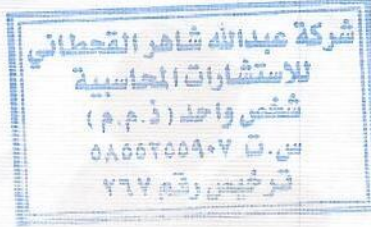 شركة عبدالله شاهر القحطاني
للاستشارات المحاسبية
شخص واحد (ذ.م.م)
س.ت ٥٨٥٥٢٥٥٩٠٧
ترخيص رقم ٧٦٧